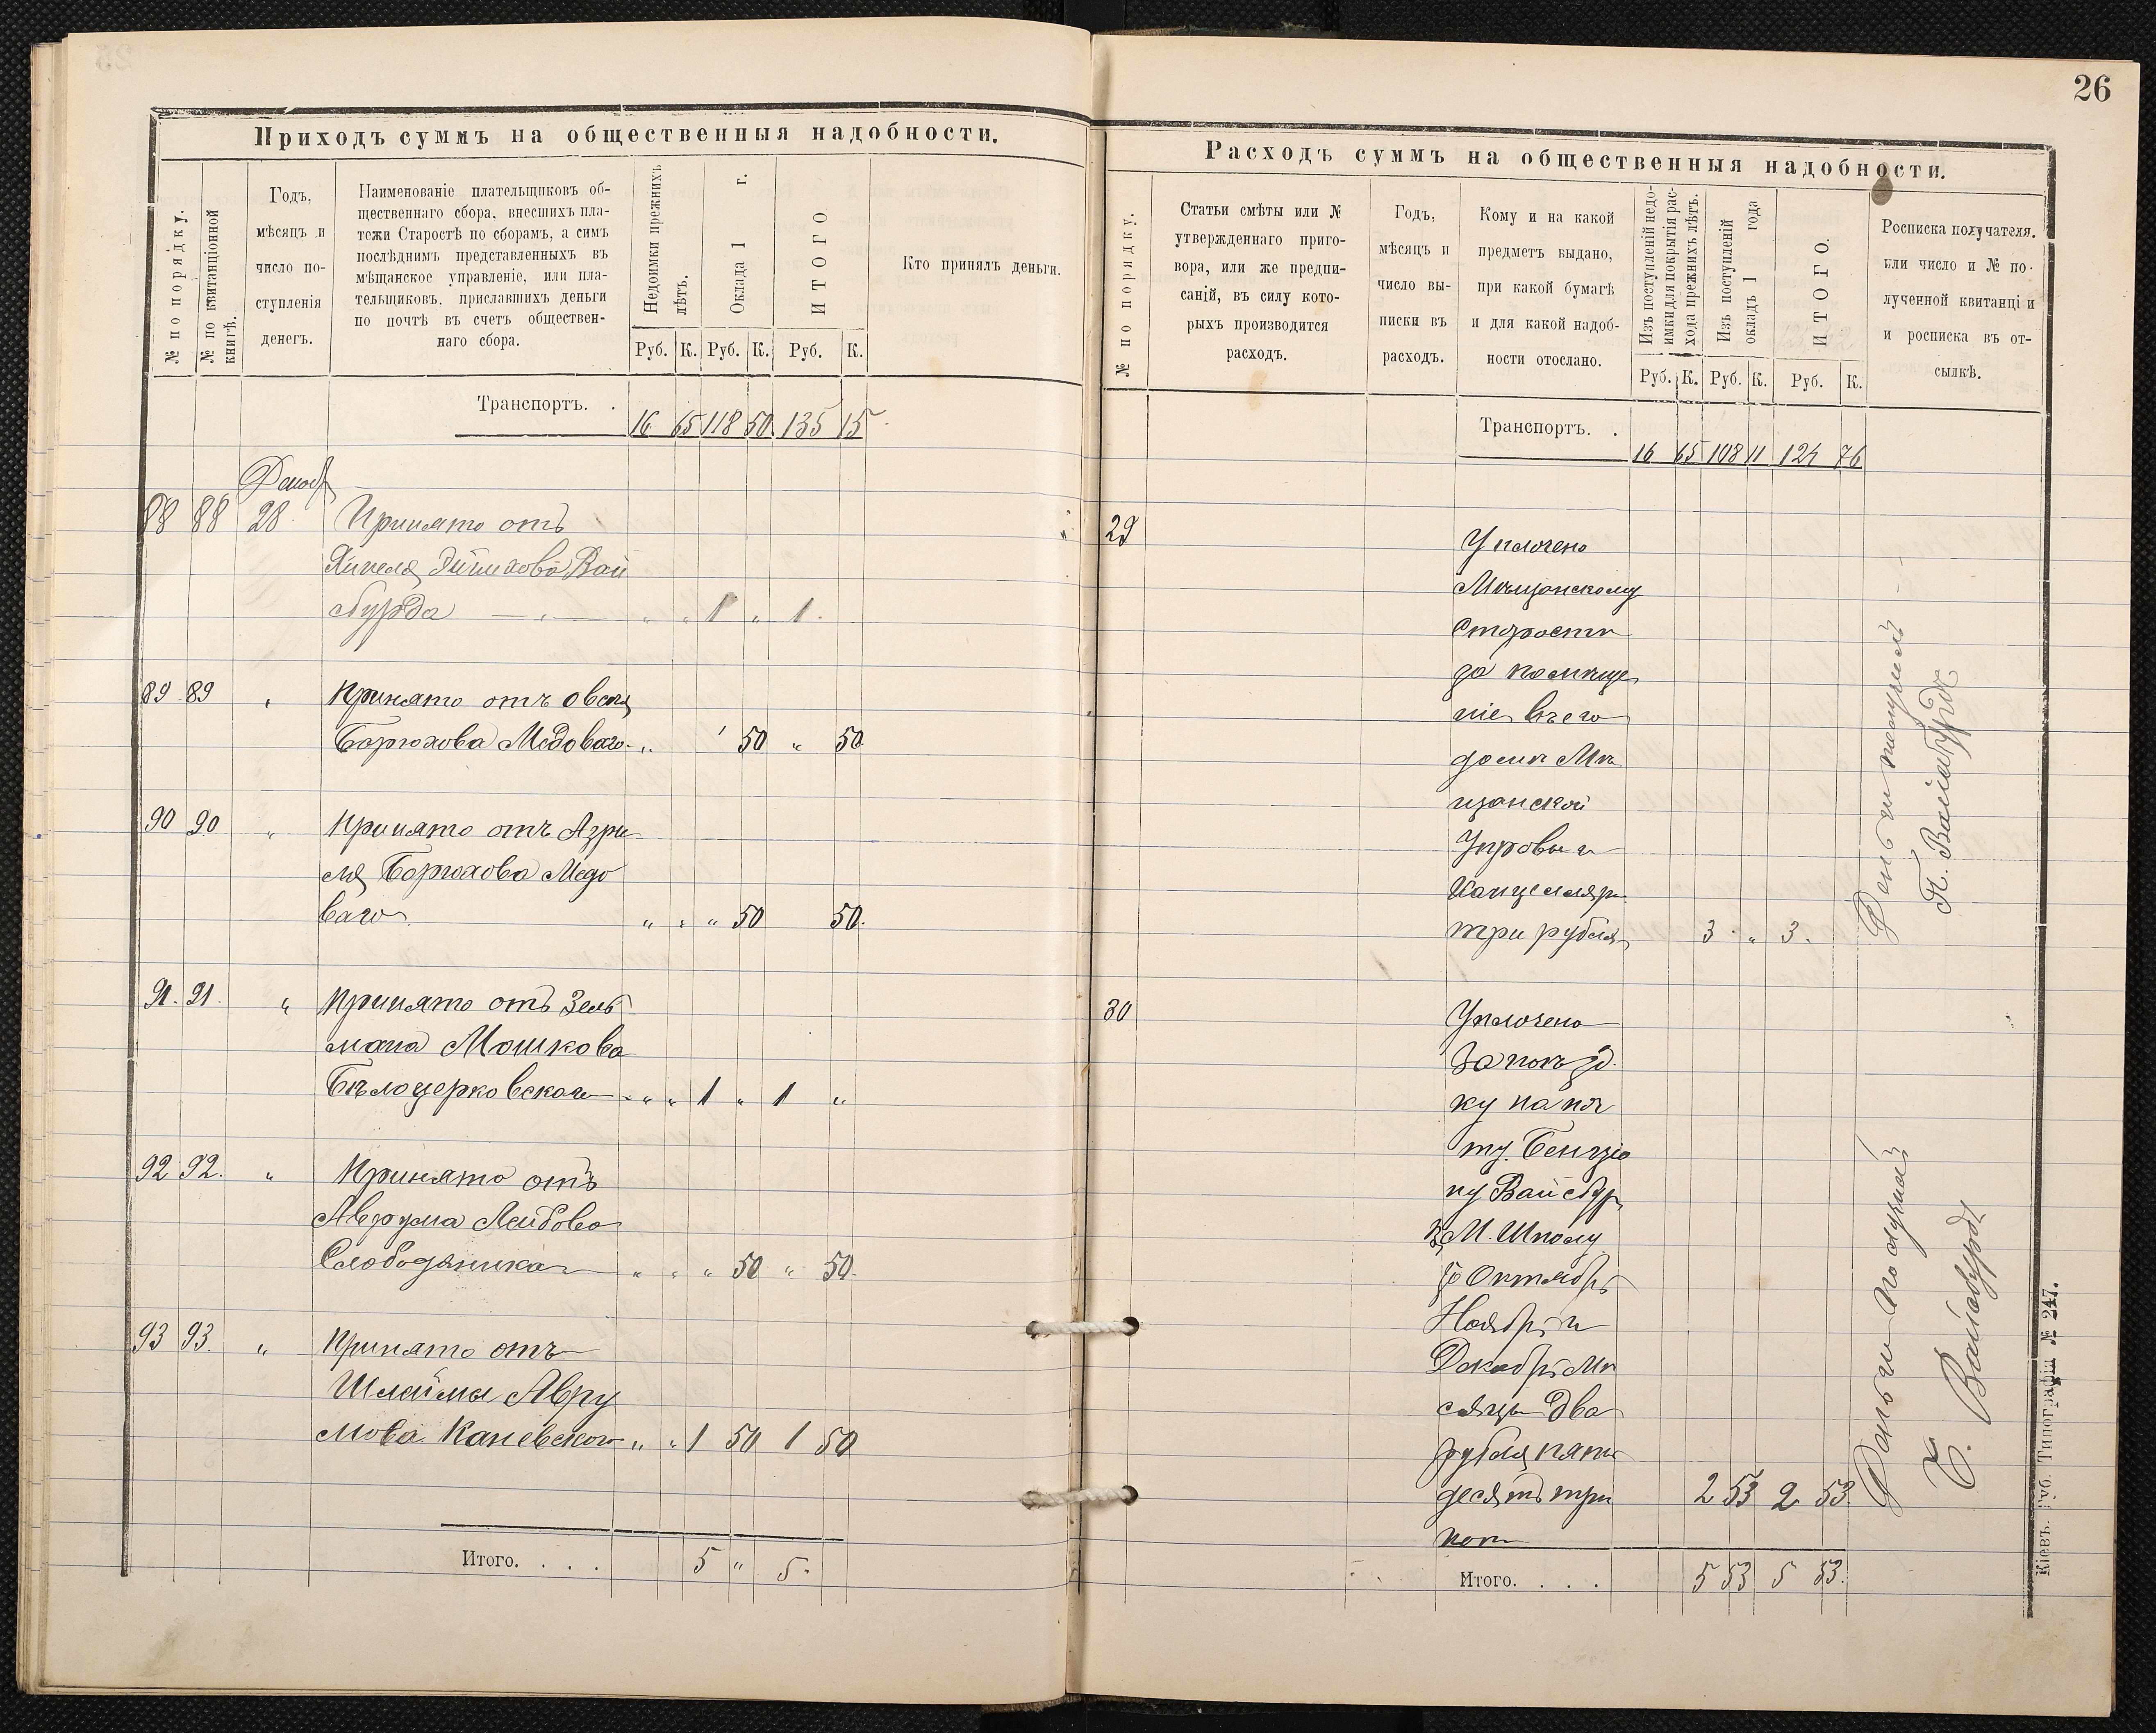 26
Приходъ суммъ на общественныя надобности.
№ по порядку.
№ по квитанціонной книгѣ.
Годъ,
мѣсяцъ и
число по-
ступленія
денегъ.
Наименованіе плательщиковъ об-
щественнаго сбора, внесшихъ пла-
тежи Старостѣ по сборамъ, а симъ
послѣднимъ представленныхъ въ
мѣщанское управленіе, или пла-
тельщиковъ, приславшихъ деньги
по почтѣ въ счетъ обществен-
наго сбора.
Недоимки прежнихъ
лѣтъ.
Оклада 1 г.
ИТОГО
Кто принялъ деньги.
Руб. К. Руб. К. Руб. К.
Транспортъ. .
16 65 118 50 135 15
88 88 28 Принято отъ
Вай
сбурда — „ — „ „ 1 „ 1.
89 89 „ Принято отъ Овсѣя
Борухова Медоваго „ 50 „ 50
90 90 „ Принято отъ Азри
ля Борухова Медо
ваго „ „ „ 50 50.
91. 91. „ Принято отъ Зель
мана Мошкова
Бѣлоцерковскаго „ „ 1 „ 1 „
92 92. „ Принято отъ
Аврума Лейбова
Слободяника „ „ „ 50 „ 50.
93 93. „ Принято отъ
Шлеймы Авру
мова Каневскаго „ „ 1 50 1 50
Итого. . . . 5 „ 5.
Расходъ суммъ на общественныя надобности.
№ по порядку.
Статьи смѣты или №
утвержденнаго приго-
вора, или же предпи-
саній, въ силу кото-
рыхъ производится
расходъ.
Годъ,
мѣсяцъ и
число вы-
писки въ
расходъ.
Кому и на какой
предметъ выдано,
при какой бумагѣ
и для какой надоб-
ности отослано.
Изъ поступленій недо-
имки для покрытія рас-
хода прежнихъ лѣтъ.
Изъ поступленій
окладъ 1 года
ИТОГО.
Росписка получателя.
или число и № по-
лученной квитанціи
и росписка въ от-
сылкѣ.
Руб. К. Руб. К. Руб. К.
Транспортъ. .
16 65 108 11 124 76
29 Уплочено
Мѣщанскому
Старостѣ
за помѣще
ніе въ его
домѣ Мѣ
щанской
Управы и
Канцеляріи
три рубля 3 „ 3.
Деньги получилъ
П. Вайсбурдъ
30 Уплочено
за поѣзд
ку на поч
ту Бенціо
ну Вайсбур
М. Шполу
за Октябрь
Ноябрь и
Декабрь мѣ
сяцы два
рубля пять
десятъ три
коп 2 53 2 53
Деньги получилъ
Б. Вайсбурдъ
Итого. . . . 5 53 5 53.
Кіевъ. Губ. Типографія № 247.